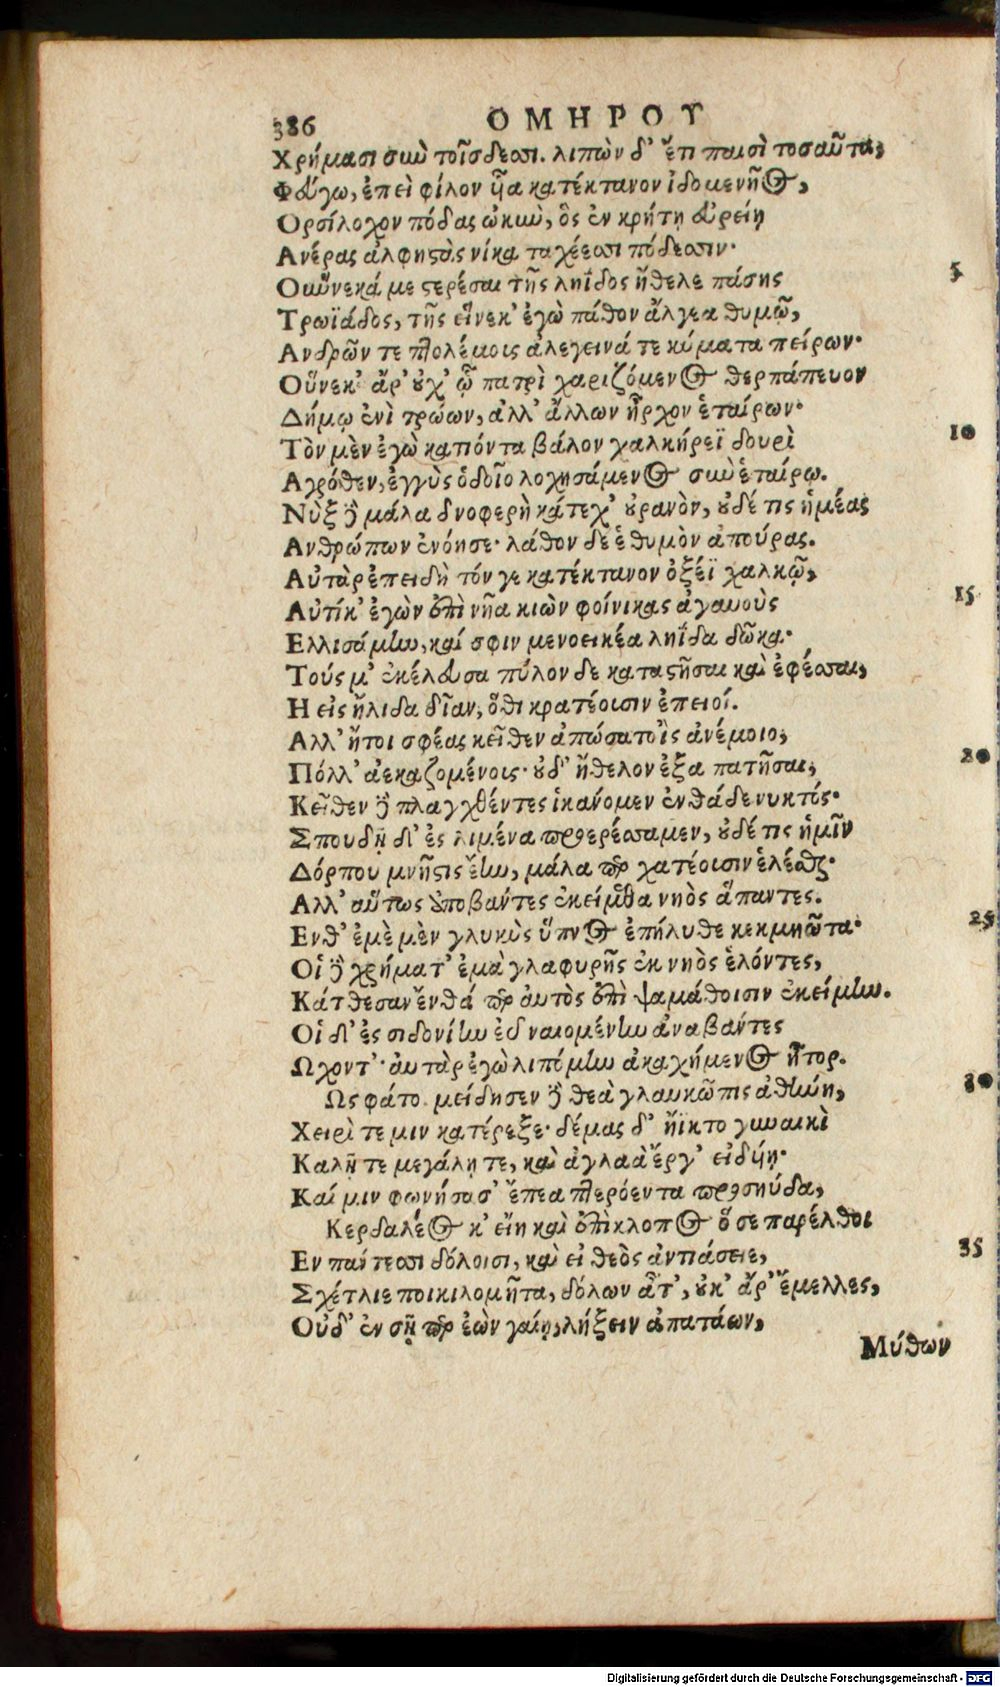 386 ΟΜΗΡΟΥ
Χρήμασι σὺν τοῖσδεσσι. λιπὼν δ' ἔτι παισὶ τοσαῦτα,
Φεύγω, ἐπεὶ φίλον ἧα κατέκτανον ἰδομενῆος,
Ορσίλοχον πόδας ὠκὺν, ὃς ἐν κρήτῃ εὐρείῃ
Ανέρας ἀλφηστὰς νίκα ταχέεσσι πόδεσσιν·
Οὕνεκά με στερέσαι τῆς ληΐδος ἤθελε πάσης 5
Τρωϊάδος, τῆς εἵνεκ' ἐγὼ πάθον ἄλγεα θυμῷ,
Ανδρῶν τε πτολέμοις ἀλεγεινά τε κύματα πείρων·
Οὕνεκ' ἄρ' οὐχ' ᾧ πατρὶ χαριζόμενος θερπάπευον
Δήμῳ ἐνὶ τρώων, ἀλλ' ἄλλων ἦρχον ἑταίρων·
Τὸν μὲν ἐγὼ κατιόντα βάλον χαλκήρεϊ δουρὶ 10
Αγρόθεν, ἐγγὺς ὁδοῖο λοχησάμενος σὺν ἑταίρῳ.
Νὺξ δὲ μάλα δνοφερὴ κάτεχ' οὐρανὸν, οὐδέ τις ἡμέας
Ανθρώπων ἐνόησε· λάθον δέ ἑ θυμὸν ἀπούρας.
Αὐτὰρ ἐπειδὴ τόν γε κατέκτανον ὀξέϊ χαλκῷ,
Αὐτίκ' ἐγὼν ἐπὶ νῆα κιὼν φοίνικας ἀγαυοὺς 15
Ελλισάμην, καί σφιν μενοεικέα ληΐδα δῶκα·
Τούς μ' ἐκέλευσα πύλον δε καταστῆσαι καὶ ἐφέσσαι,
Η εἰς ἤλιδα δῖαν, ὅθι κρατέοισιν ἐπειοί.
Αλλ' ἤτοι σφέας κεῖθεν ἀπώσατο ἲς ἀνέμοιο,
Πόλλ' ἀεκαζομένοις· οὐδ' ἤθελον ἐξαπατῆσαι, 20
Κεῖθεν δὲ πλαγχθέντες ἱκάνομεν ἐνθάδε νυκτός·
Σπουδῇ δ' ἐς λιμένα προερέσσαμεν, οὐδέ τις ἡμῖν
Δόρπου μνῆστις ἔην, μάλα περ χατέοισιν ἑλέσθαι·
Αλλ' αὔτως ἀποβάντες ἐκείμεθα νηὸς ἅπαντες.
Ενθ' ἐμὲ μὲν γλυκὺς ὕπνος ἐπήλυθε κεκμηῶτα· 25
Οἱ δὲ χρήματ' ἐμὰ γλαφυρῆς ἐκ νηὸς ἑλόντες,
Κάτθεσαν ἔνθά περ αὐτὸς ἐπὶ ψαμάθοισιν ἐκείμην.
Οἱ δ' ἐς σιδονίην ἐὺ ναιομένην ἀναβάντες
Ωχοντ'· αὐτὰρ ἐγὼ λιπόμην ἀκαχήμενος ἦτορ.
Ως φάτο μείδησεν δὲ θεὰ γλαυκῶπις ἀθήνη, 30
Χειρὶ τέ μιν κατέρεξε· δέμας δ' ἤϊκτο γυναικὶ
Καλῇ τε μεγάλῃ τε, καὶ ἀγλαὰ ἔργ' εἰδυίῃ·
Καί μιν φωνήσασ' ἔπεα πτερόεντα προσηύδα,
Κερδαλέος κ' εἴη καὶ ἐπίκλοπος ὅ σε παρέλθοι
Εν πάντεσσι δόλοισι, καὶ εἰ θεὸς ἀντιάσειε, 35
Σχέτλιε ποικιλομῆτα, δόλων ἆτ', οὐκ' ἄρ' ἔμελλες,
Οὐδ' ἐν σῇ περ ἐὼν γαίῃ, λήξειν ἀπατάων,
Μύθων
Digitalisierung gefördert durch die Deutsche Forschungsgemeinschaft - DFG